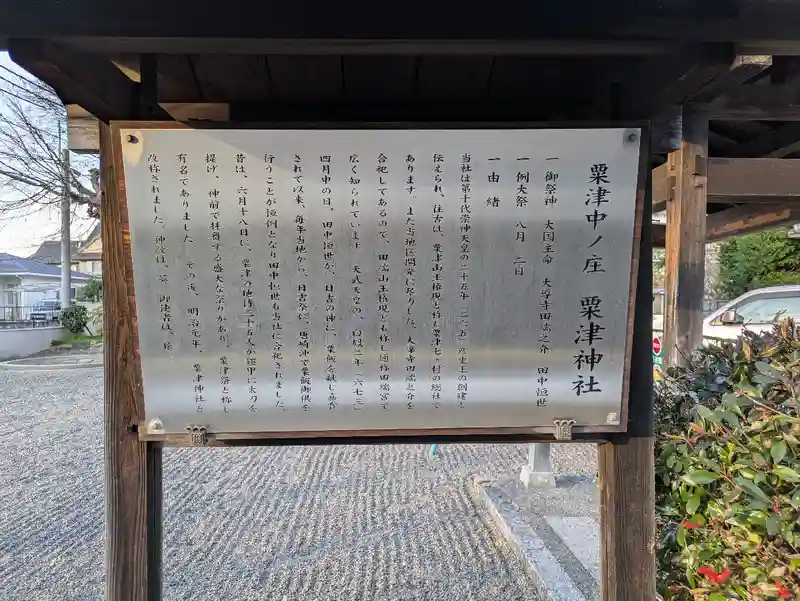 粟津中ノ庄　粟津神社
一　御祭神　大国主命　大導寺田端之介　田中恒世
一　例大祭　八月　二日
一　由緒
当社は第十代崇神天皇の二十五年 彦坐王の創建と
伝えられ、往古は、粟津山王権現と称し粟津七ヶ村の総社で
あります。また当地区開発に尽りした、大導寺田端之介を
合祀してあるので、田端山王権現とも称し通称田端宮で
広く知られています。天武天皇の、白鳳二年（六七三）
四月申の日、田中恒世が、日吉の神に、粟飯を献じ
されて以来、毎年当地から、日吉祭に、唐崎沖で粟飯御供を
行うことが恒例となり田中恒世も当社に合祀されました。
昔は、六月十八日に、粟津の地侍二十五人が 甲に太刀を
提げ、神前で拝舞する盛大な祭りがあり、粟津祭と称し
有名でありました。その後、明治元年、粟津神社と
改称されました。神紋は、 御使者は、猿